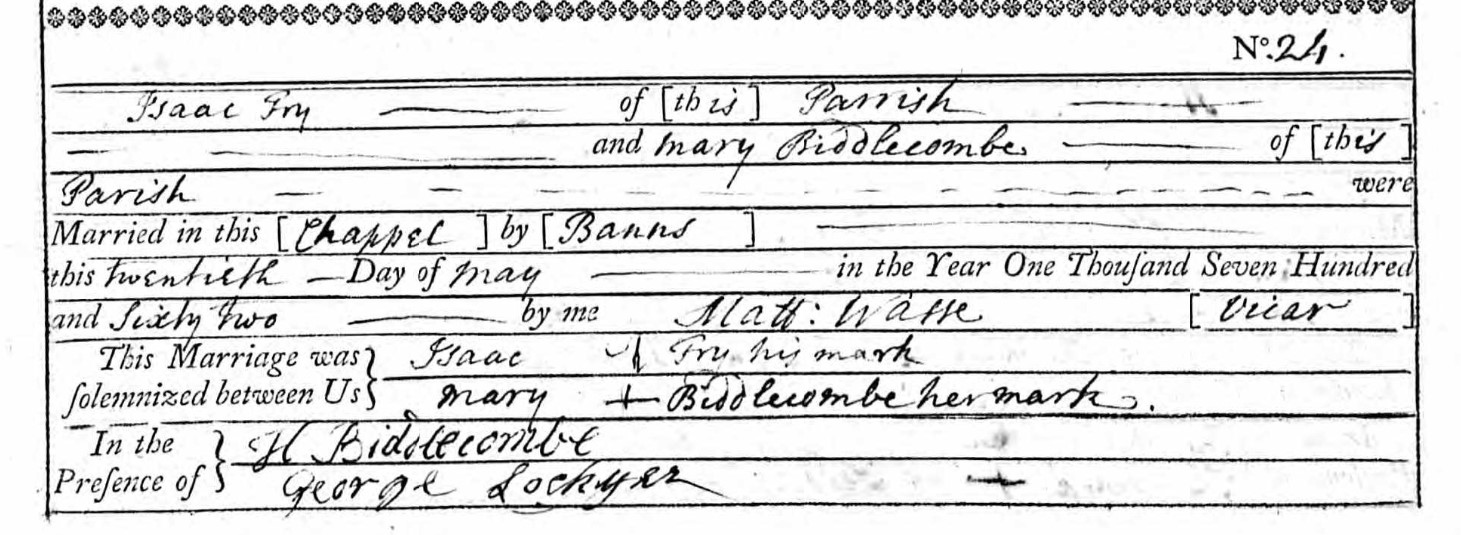 No. 24.
Isaac Fry of [this] Parrish
and Mary Biddlecombe of [this]
Parish were
Married in this [Chappel] by [Banns]
this twentieth Day of May in the Year One Thouſand Seven Hundred
and Sixty Two by me Matt: Wasse [Vicar]
This Marriage was } Isaac + Fry his mark
ſolemnized between Us } Mary + Biddlecombe her mark.
In the } H Biddlecombe
Preſence of } George Lockyer +